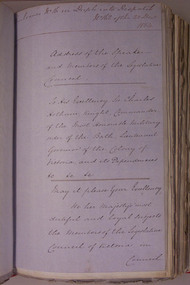 Address of the
and Members of the Legislative
Council
To His Excellency Sir Charles
Hotham, Knight Commander
of the Most Honorable Military
order of the Bath Lieutenant
Governor of the Colony of
Victoria and its Dependencies
&c &c &c
May it please Your Excellency
We Her Majesty's most
dutiful and loyal subjects
the Members of the Legislative
Council of Victoria in
Council